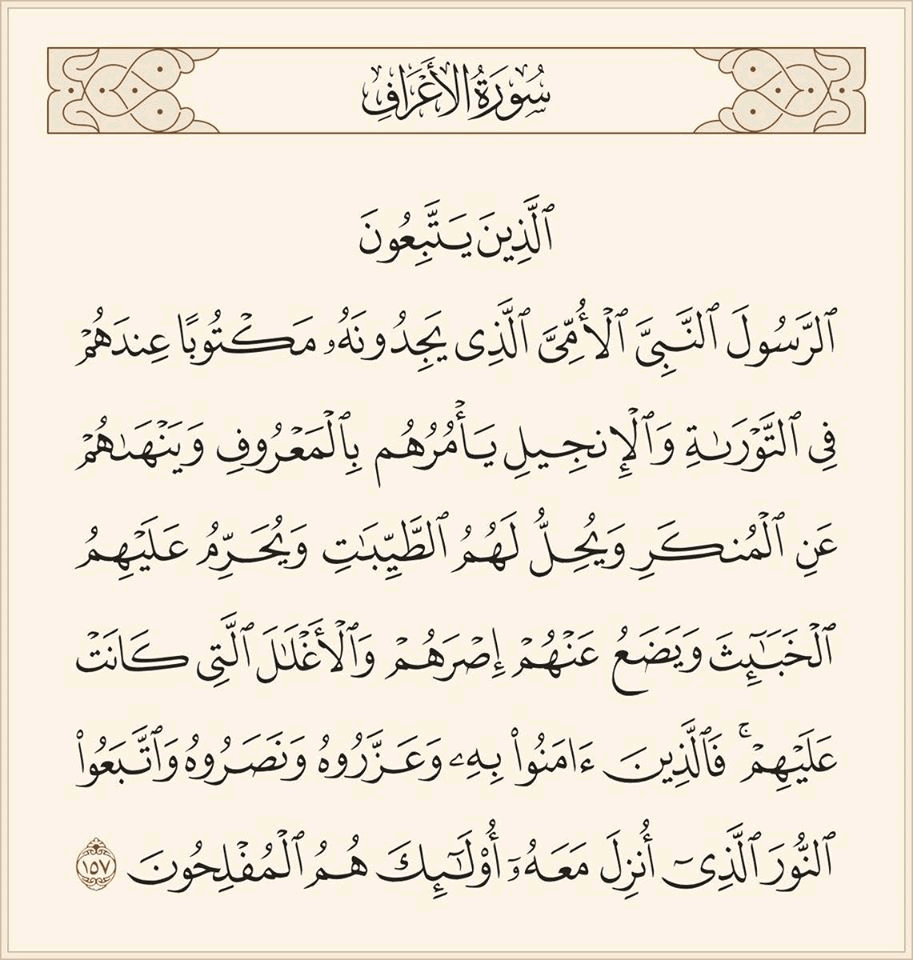 سُورَةُ الأَعْرَافِ
ٱلَّذِينَ يَتَّبِعُونَ
ٱلرَّسُولَ ٱلنَّبِىَّ ٱلْأُمِّىَّ ٱلَّذِى يَجِدُونَهُۥ مَكْتُوبًا عِندَهُمْ
فِى ٱلتَّوْرَىٰةِ وَٱلْإِنجِيلِ يَأْمُرُهُم بِٱلْمَعْرُوفِ وَيَنْهَىٰهُمْ
عَنِ ٱلْمُنكَرِ وَيُحِلُّ لَهُمُ ٱلطَّيِّبَٰتِ وَيُحَرِّمُ عَلَيْهِمُ
ٱلْخَبَٰٓئِثَ وَيَضَعُ عَنْهُمْ إِصْرَهُمْ وَٱلْأَغْلَٰلَ ٱلَّتِى كَانَتْ
عَلَيْهِمْ ۚ فَٱلَّذِينَ ءَامَنُوا۟ بِهِۦ وَعَزَّرُوهُ وَنَصَرُوهُ وَٱتَّبَعُوا۟
ٱلنُّورَ ٱلَّذِىٓ أُنزِلَ مَعَهُۥٓ أُو۟لَٰٓئِكَ هُمُ ٱلْمُفْلِحُونَ ١٥٧